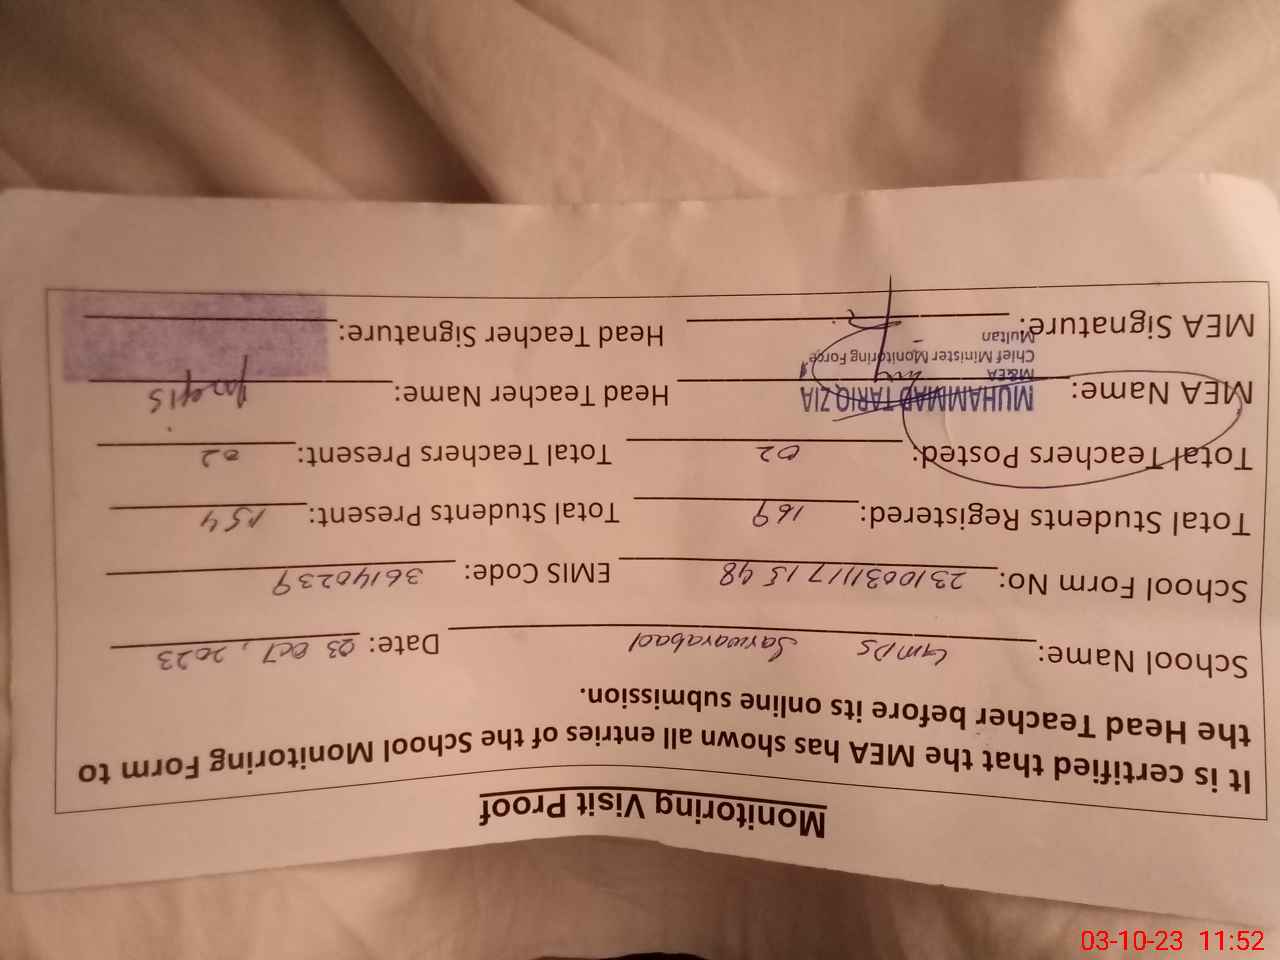 Monitoring Visit Proof
It is certified that the MEA has shown all entries of the School Monitoring Form to
the Head Teacher before its online submission.
School Name: GMPS Sarwarabad Date: 03 Oct, 2023
School Form No: 23100311171548 EMIS Code: 36140239
Total Students Registered: 169 Total Students Present: 154
Total Teachers Posted: 02 Total Teachers Present: 02
MEA Name: MUHAMMAD TARIQ ZIA Head Teacher Name:
M&EA
Chief Minister Monitoring Force
Multan
MEA Signature: Head Teacher Signature:
03-10-23 11:52